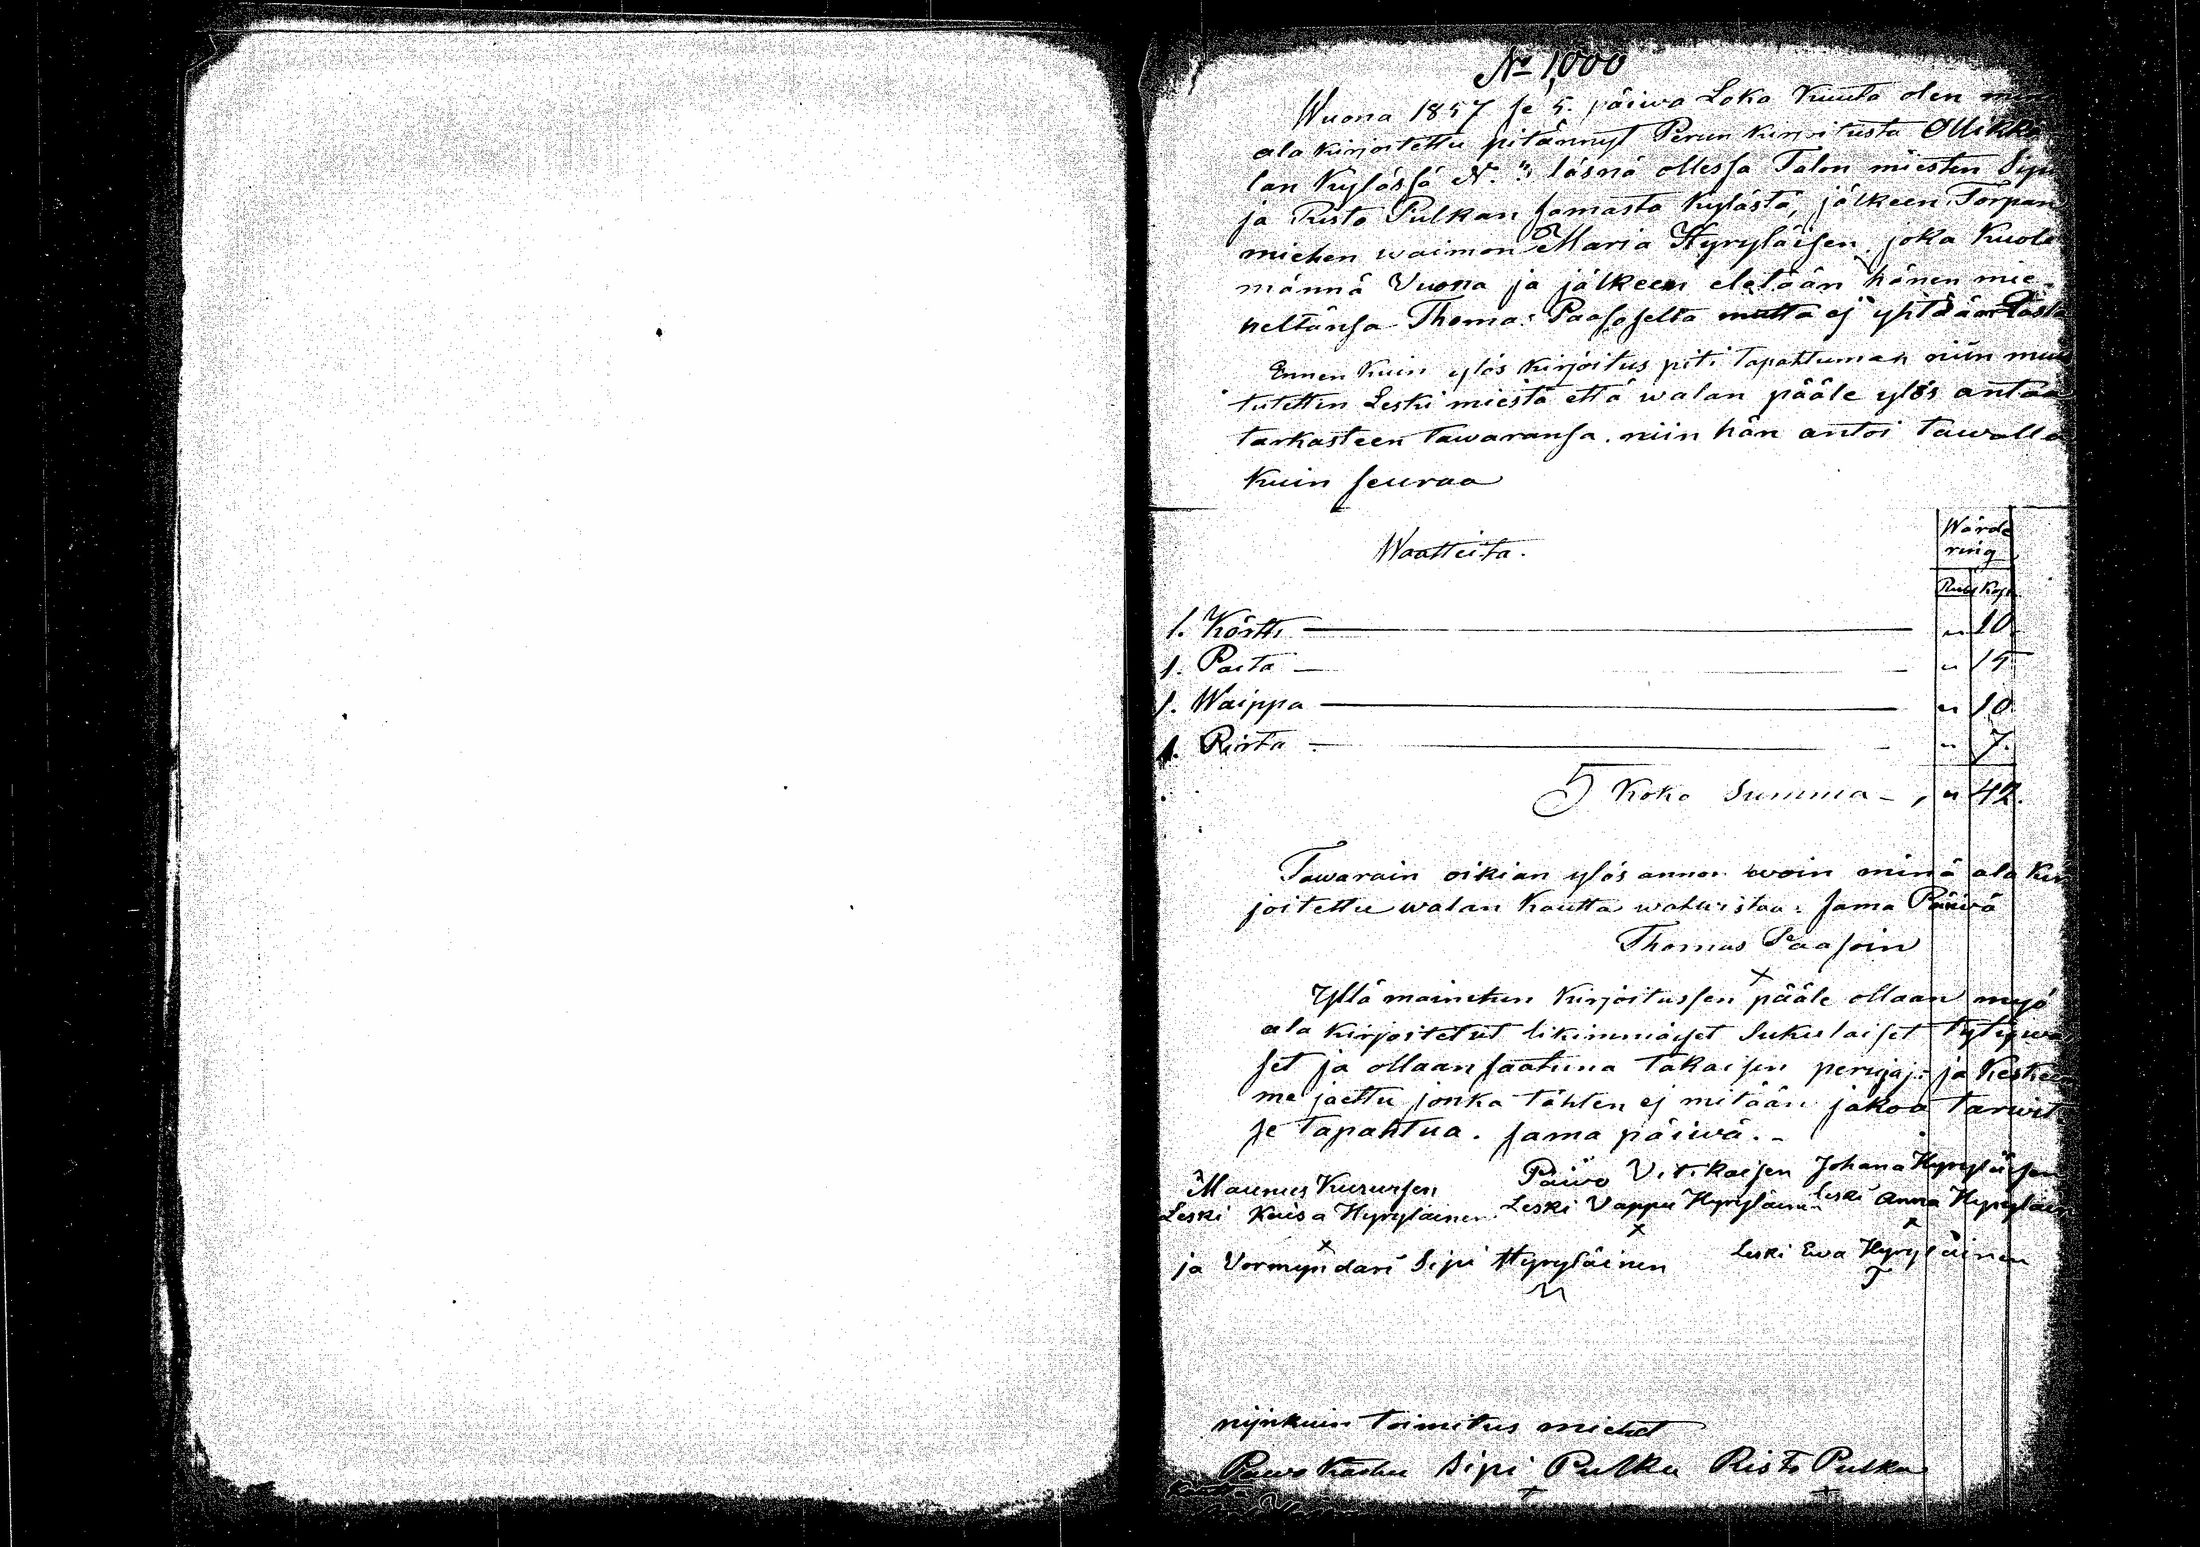 No 1000
Wuona 1857 se 5. päiwä Loka Kuuta olen
ala kirjoitettu pitännyt Perun kirjoitusta Ollikka
lan Kylässä N. 3 läsnä ollessa Talon miesten Sipi
ja Risto Pulkan samasta Kylästä, jälkeen Torpan
miehen waimon Maria Hyryläisen joka Kuole
männä Vuona ja jälkeen eletään hänen mie
heltänsä Thomas Paasoselta mutta ej yhtään Lasta
Ennen kuin ylös kirjoitus piti tapahtuman niin muis
tutettin Leski miestä että walan pääle ylös antaa
tarkasteen tawaransa. niin hän antoi tawalla
kuin seuraa
Wärde
ring
Waatteita.
Rub Kop
1. Körtti " 10.
1. Paita " 15
1. Waippa " 10
1. Reista " 7.
Koko Summa - " 42.
Tawarain oikian ylös annon woin minä ala kir
joitettu walan kautta wahwistaa: sama Päiwä
Thomas Paasoin
x
Yllä mainitun kirjoitussen pääle ollaan myö
ala kirjoitetut likimmäiset Sukulaiset tytywä
set ja ollaan saatuna takaisen perujaj: ja Kesken
me jaettu jonka tähten ej mitään jakoa tarwit
se tapahtua. sama päiwä. -
Maunus Kurursen Päiwo Vitikaisen Johana Hyryläisen
Leski Kaisa Hyryläinen Leski Vappu Hyryläinen Leski Anna Hyryläinen
x x x
ja Vormyndari Sipi Hyryläinen Leski Ewa Hyryläinen
nijnkuin toimitus miehet
Pawo Kaehu Sipi Pulku Risto Pulka
+ +